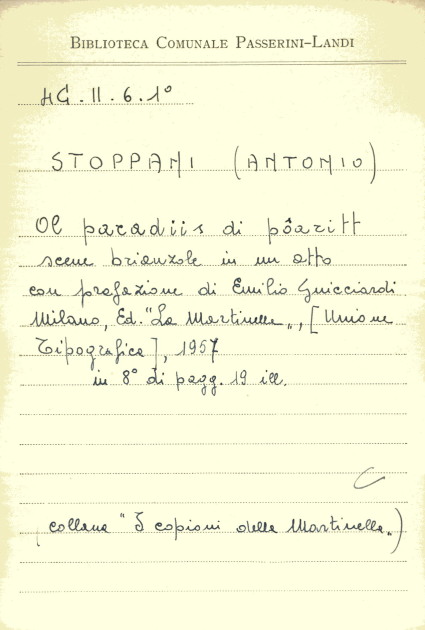 BIBLIOTECA COMUNALE PASSERINI-LANDI
4G.II.6.1°
STOPPANI (ANTONIO)
Ol paradiis di pôaritt
scene brianzole in un atto
con prefazione di Emilio Guicciardi
Milano, Ed. "La Martinella", [Unione
Tipografica], 1957
in 8° di pagg. 19 ill.
C
(collana "I copioni della Martinella")